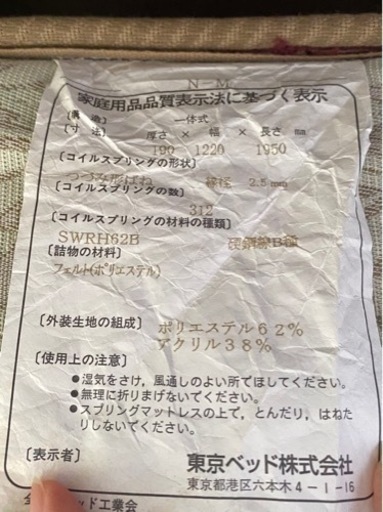 N-M
家庭用品品質表示法に基づく表示
〔構造〕 一体式
〔寸法〕 厚さ × 幅 × 長さ ㎜
190 1220 1950
〔コイルスプリングの形状〕
つづみ形ばね 線径 2.5㎜
〔コイルスプリングの数〕
312
〔コイルスプリングの材料の種類〕
SWRH62B 硬鋼線B種
〔詰物の材料〕
フェルト(ポリエステル)
〔外装生地の組成〕 ポリエステル62%
アクリル38%
〔使用上の注意〕
●湿気をさけ，風通しのよい所でほしてください。
●無理に折りまげないでください。
●スプリングマットレスの上で，とんだり，はねた
りしないでください。
〔表示者〕 東京ベッド株式会社
東京都港区六本木4-1-16
ッド工業会